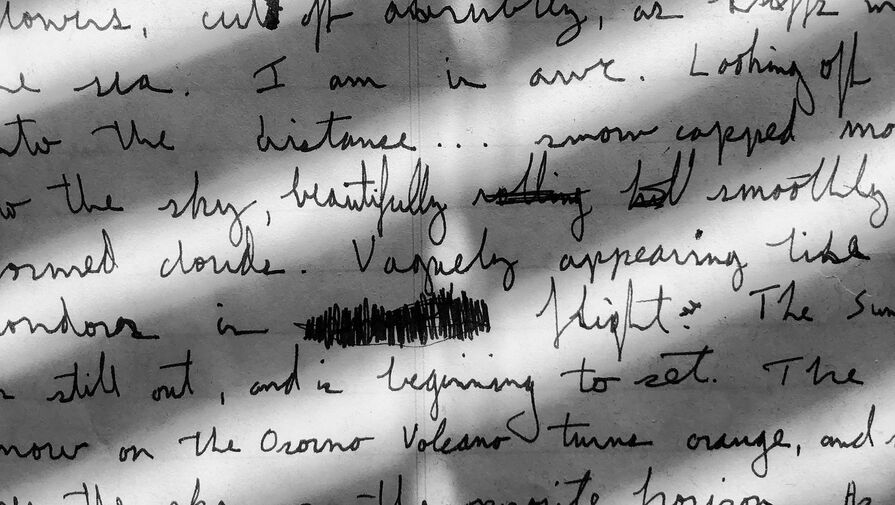 towers, cut off abruptly, as
sea. I am in awe. Looking off
into the distance... snow capped mo
the sky, beautifully rolling but smoothly
ormed clouds. Vaguely appearing like
ondors in flight. The Sun
still out, and is beginning to set. The
now on the Osorno Volcano turns orange, and
the sky the opposite horizon. As